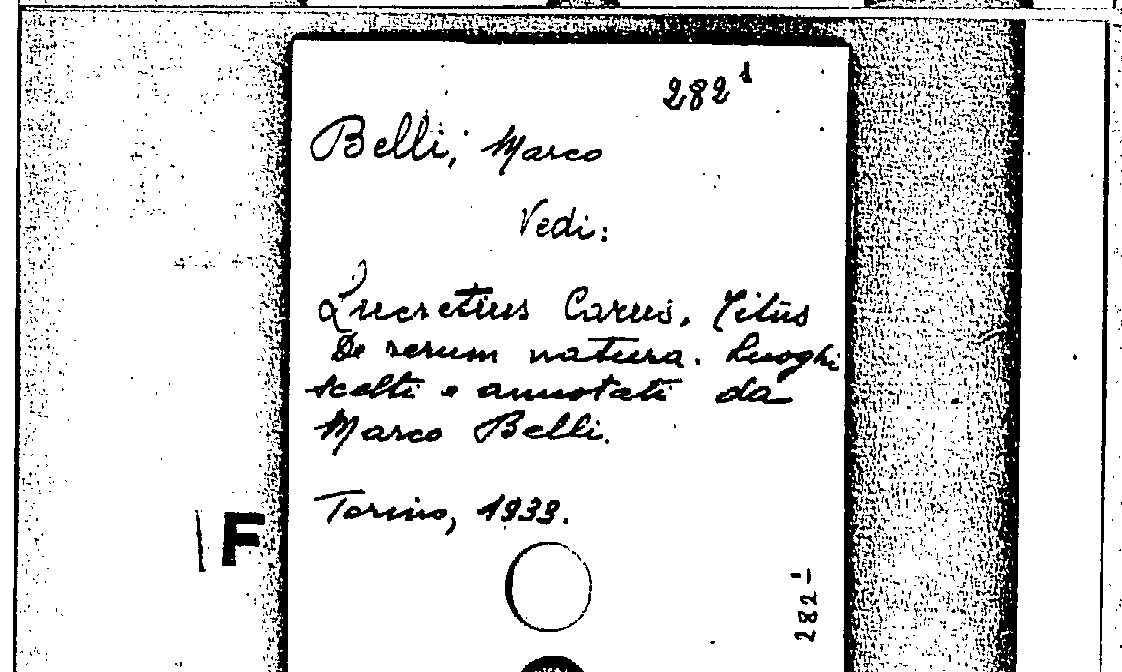 282¹
Belli, Marco
Vedi:
Lucretius Carus, Titus
De rerum natura. Luoghi
scelti e annotati da
Marco Belli.
Torino, 1933.
F
282¹